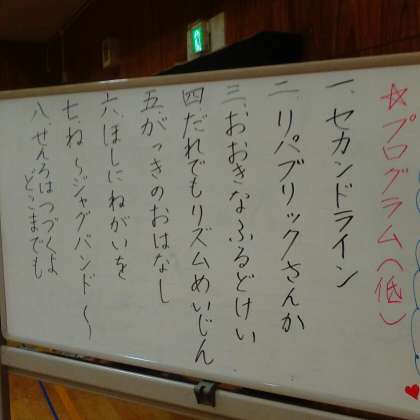 ☆プログラム(低)
一、セカンドライン
二、リパブリックさんか
三、おおきなふるどけい
四、だれでもリズムめいじん
五、がっきのおはなし
六、ほしにねがいを
七、ね〜ジャグバンド〜
八、せんろはつづくよ
どこまでも